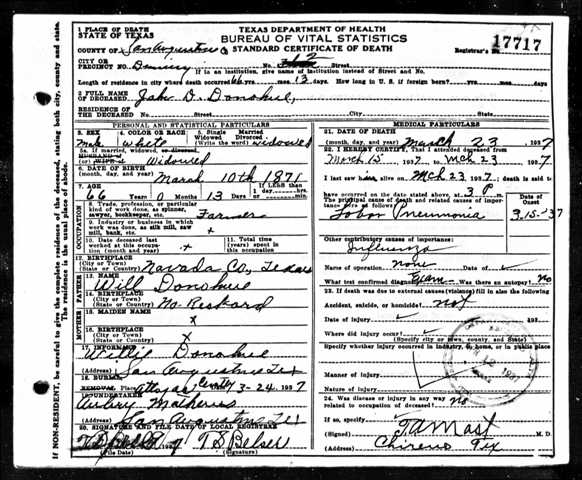 TEXAS DEPARTMENT OF HEALTH
BUREAU OF VITAL STATISTICS
STANDARD CERTIFICATE OF DEATH
17717
Registrar's No.
1 PLACE OF DEATH
STATE OF TEXAS
COUNTY OF San Augustine
CITY OR
PRECINCT NO. Denning No. Street
If in an institution, give name of institution instead of Street and No.
Length of residence in city where death occurred 66 yrs. mos. 13 days. How long in U. S. if foreign born? yrs mos days
2 FULL NAME
OF DECEASED D. Donohue,
RESIDENCE OF
THE DECEASED No. Street City State
PERSONAL AND STATISTICAL PARTICULARS
3. SEX 4. COLOR OR RACE 5. Single Married
Widowed Divorced
(Write the word)
Male White widowed
5a. If married, widowed, or divorced
HUSBAND of
Widowed
6. DATE OF BIRTH
(month, day, and year) March 10th 1871
7. AGE If LESS than
1 day, hrs.
min.
66 Years 0 Months 13 Days
OCCUPATION
8. Trade, profession, or particular
kind of work done, as spinner,
sawyer, bookkeeper, etc. Farmer
9. Industry or business in which
work was done, as silk mill, saw
mill, bank, etc. +
10. Date deceased last
worked at this occupation
(month and year)
11. Total time (years)
spent in this
occupation +
12. BIRTHPLACE
(City or Town)
(State or Country) Navada Co, Texas
FATHER
13. NAME
Will Donohue
14. BIRTHPLACE
(City or Town)
(State or Country) No Reskord
MOTHER
15. MAIDEN NAME
x
16. BIRTHPLACE
(City or Town)
(State or Country) x
17. INFORMANT
Willie Donohue
(Address) San Augustine Tex
18. BURIAL
REMOVAL Place 3-24 1937
19. UNDERTAKER
Mathews
(Address) San Augustine Tex
20. SIGNATURE AND FILE DATE OF LOCAL REGISTRAR
T S
(File Date) (Signature)
MEDICAL PARTICULARS
21. DATE OF DEATH
(month, day, and year) March 23, 1937
22. I HEREBY CERTIFY, That I attended deceased from
March 15 1937 to Mch 23 1937
I last saw him alive on Mch 23 1937; death is said to
have occurred on the date stated above, at 3 P m.
The principal cause of death and related causes of importance
were as follows: Date of Onset
Lobor Pneumonia 3-15-37
Other contributory causes of importance:
Influenza
Name of operation none Date of
What test confirmed diagnosis? Exam Was there an autopsy? no
23. If death was due to external causes (violence) fill in also the following:
Accident, suicide, or homicide? not
Date of injury 193
Where did injury occur?
(Specify city or town, county, and State)
Specify whether injury occurred in industry, in home, or in public place
Manner of injury
Nature of injury
24. Was disease or injury in any way
related to occupation of deceased? no
If so, specify
(Signed) T A Mast M. D.
(Address) Chireno Tex